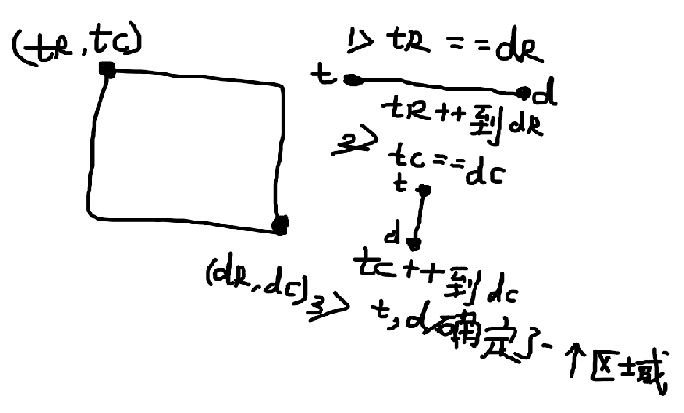 (tR,tC)
1> tR==dR
t
d
tR++到dR
2>
tC==dC
t
d
tC++到dC
(dR,dC)
3> t,d确定了一个区域